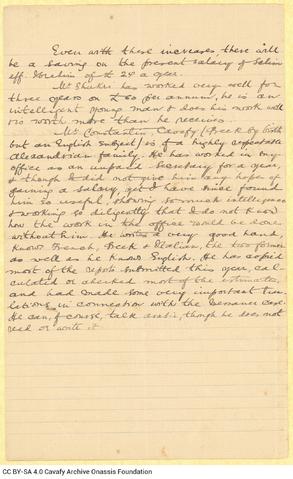 Even with these increases there will
be a saving on the present salary of Selim
eff. Ibrahim of £ 24 a year.
Mr Shukri has worked very well for
three years on £ 60 per annum, he is an
intelligent young man & does his work well
& is worth more than he receives.
Mr Constantin Cavafy (Greek by birth
but an English subject) is of a highly respectable
Alexandrian family. He has worked in my
office as an unpaid secretary for a year,
& though I did not give him any hopes of
gaining a salary, yet I have since found
him so useful, showing so much intelligence
& working so diligently that I do not know
how the work in the office would be done
without him. He writes a very good hand,
knows French, Greek & Italian, the two former
as well as he knows English. He has copied
most of the reports submitted this year, cal-
culated or checked most of the estimates,
and has made some very important trans-
lations in connection with the case.
He can, of course, talk arabic, though he does not
read or write it.
CC BY-SA 4.0 Cavafy Archive Onassis Foundation